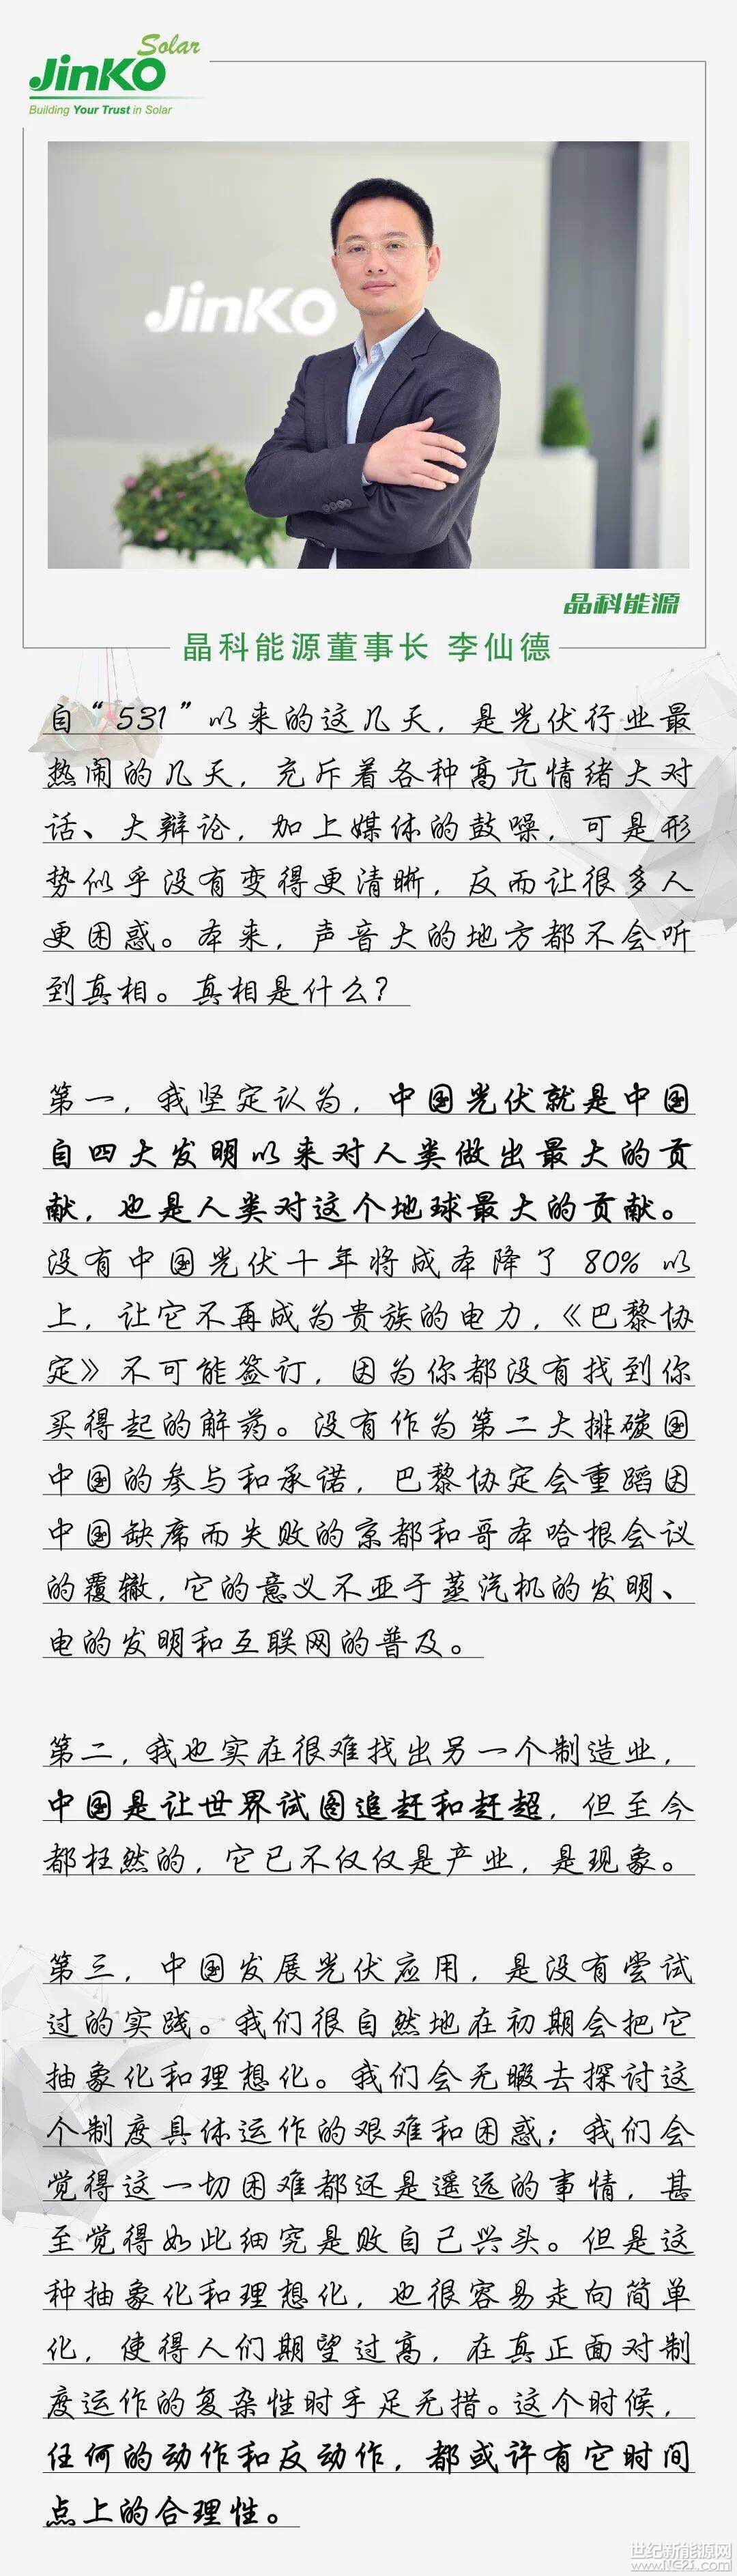 Solar
JinKO
Building Your Trust in Solar
JinKO
晶科能源
晶科能源董事长 李仙德
自“531”以来的这几天，是光伏行业最
热闹的几天，充斥着各种高亢情绪大对
话、大辩论，加上媒体的鼓噪，可是形
势似乎没有变得更清晰，反而让很多人
更困惑。本来，声音大的地方都不会听
到真相。真相是什么？
第一，我坚定认为，中国光伏就是中国
自四大发明以来对人类做出最大的贡
献，也是人类对这个地球最大的贡献。
没有中国光伏十年将成本降了 80% 以
上，让它不再成为贵族的电力，《巴黎协
定》不可能签订，因为你都没有找到你
买得起的解药。没有作为第二大排碳国
中国的参与和承诺，巴黎协定会重蹈因
中国缺席而失败的京都和哥本哈根会议
的覆辙，它的意义不亚于蒸汽机的发明、
电的发明和互联网的普及。
第二，我也实在很难找出另一个制造业，
中国是让世界试图追赶和赶超，但至今
都枉然的，它已不仅仅是产业，是现象。
第三，中国发展光伏应用，是没有尝试
过的实践。我们很自然地在初期会把它
抽象化和理想化。我们会无暇去探讨这
个制度具体运作的艰难和困惑；我们会
觉得这一切困难都还是遥远的事情，甚
至觉得如此细究是败自己兴头。但是这
种抽象化和理想化，也很容易走向简单
化，使得人们期望过高，在真正面对制
度运作的复杂性时手足无措。这个时候，
任何的动作和反动作，都或许有它时间
点上的合理性。
世纪新能源网
www.NE21.com